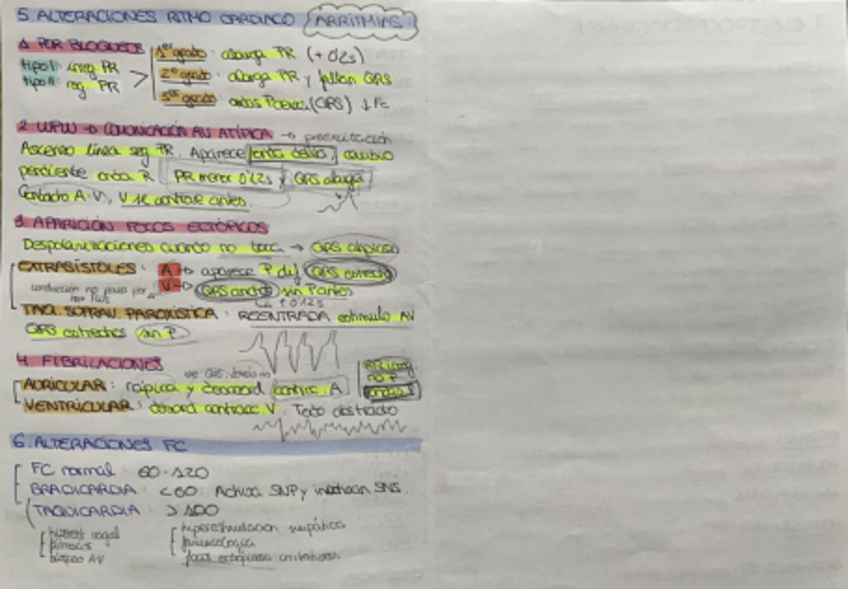 5. ALTERACIONES RITMO CARDIACO (ARRITMIAS)
1. POR BLOQUEOS
1er grado: alarga PR (+0'2s)
tipo I: irreg PR
2º grado: alarga PR y fallan QRS
tipo II: reg PR
3er grado: ondas P (QRS) ↓ Fc
2. WPW → COMUNICACIÓN AV ATÍPICA → preexcitación
Ascenso línea seg PR. Aparece onda delta, cambio
pendiente onda R PR menor 0'12s y QRS alarga
Contacto A-V, V se contrae antes.
3 APARICIÓN FOCOS ECTÓPICOS
Despolarizaciones cuando no toca → QRS atípicos
EXTRASÍSTOLES: A → aparece P dif QRS estrecho
conducción no pasa por
V → QRS ancho sin P antes
+0'12s
TAQ. SUPRAV. PAROXÍSTICA: REENTRADA estímulo AV
QRS estrechos sin P
4. FIBRILACIONES
AURICULAR: rápida y desacord contrac. A
no P
VENTRICULAR: desord contracc V. Todo
6. ALTERACIONES FC
FC normal: 60-120
BRADICARDIA: <60. Activa SNP y SNS.
TAQUICARDIA: >100
vagal
hiperestimulación simpática
fármacos
farmacológica
bloqueo AV
focos ectópicos irritativos